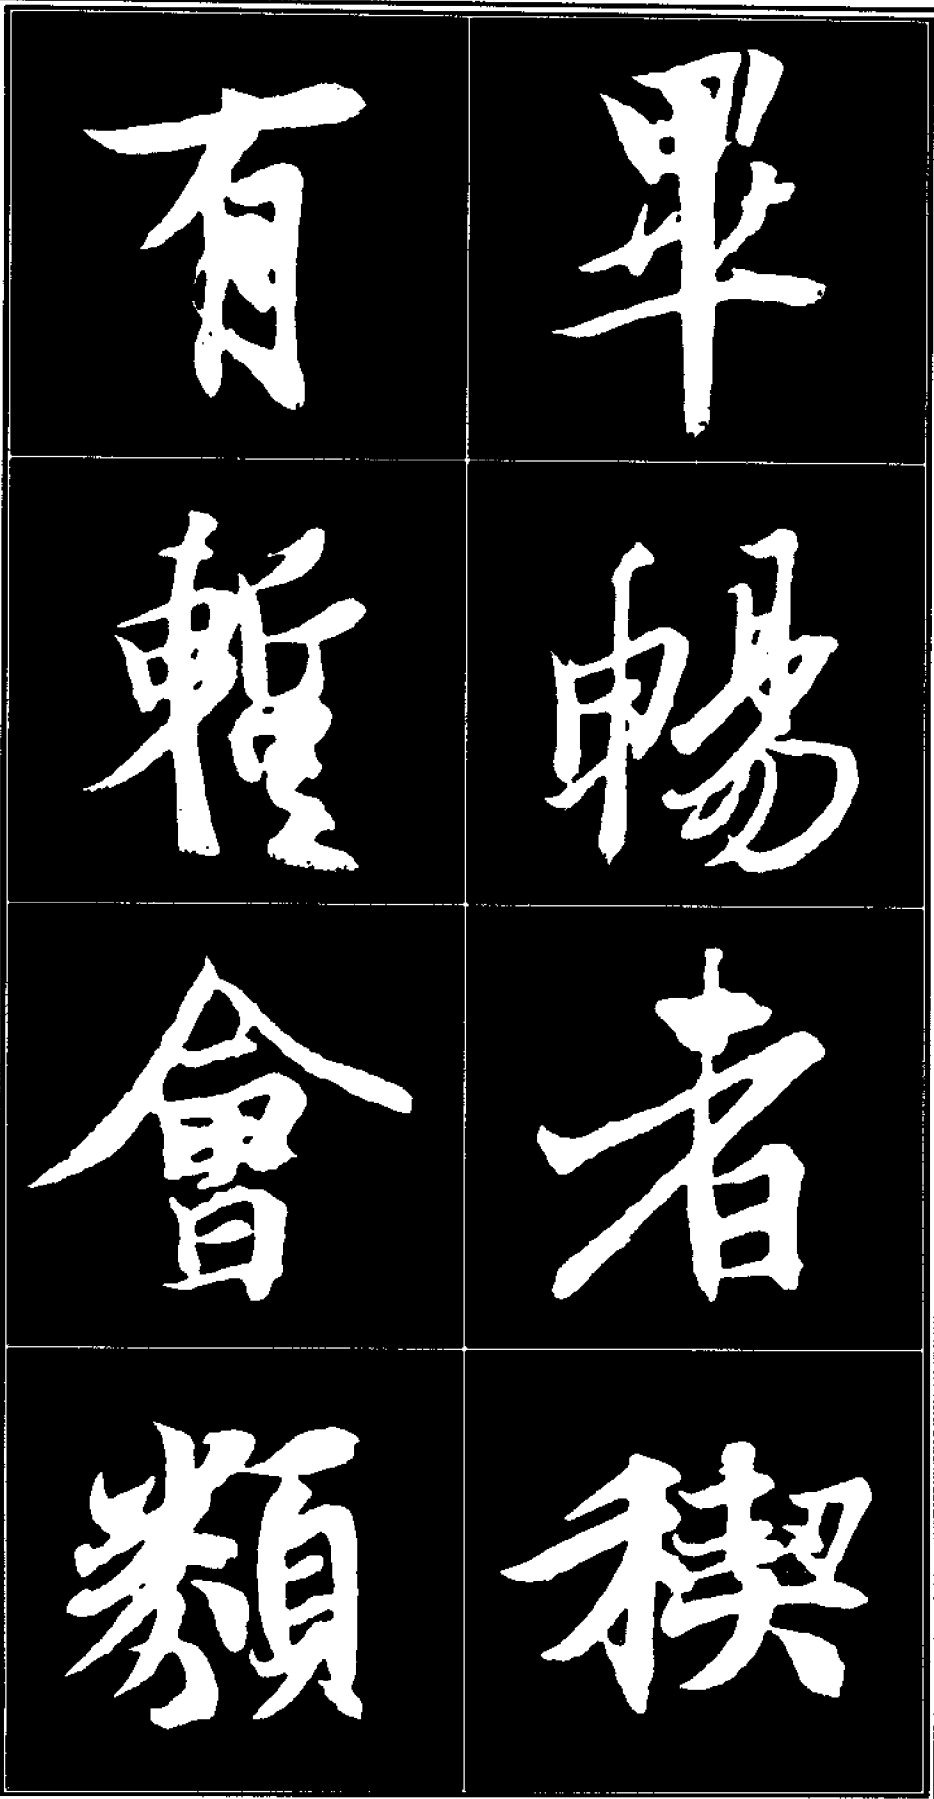 畢暢者稧
有暫會類